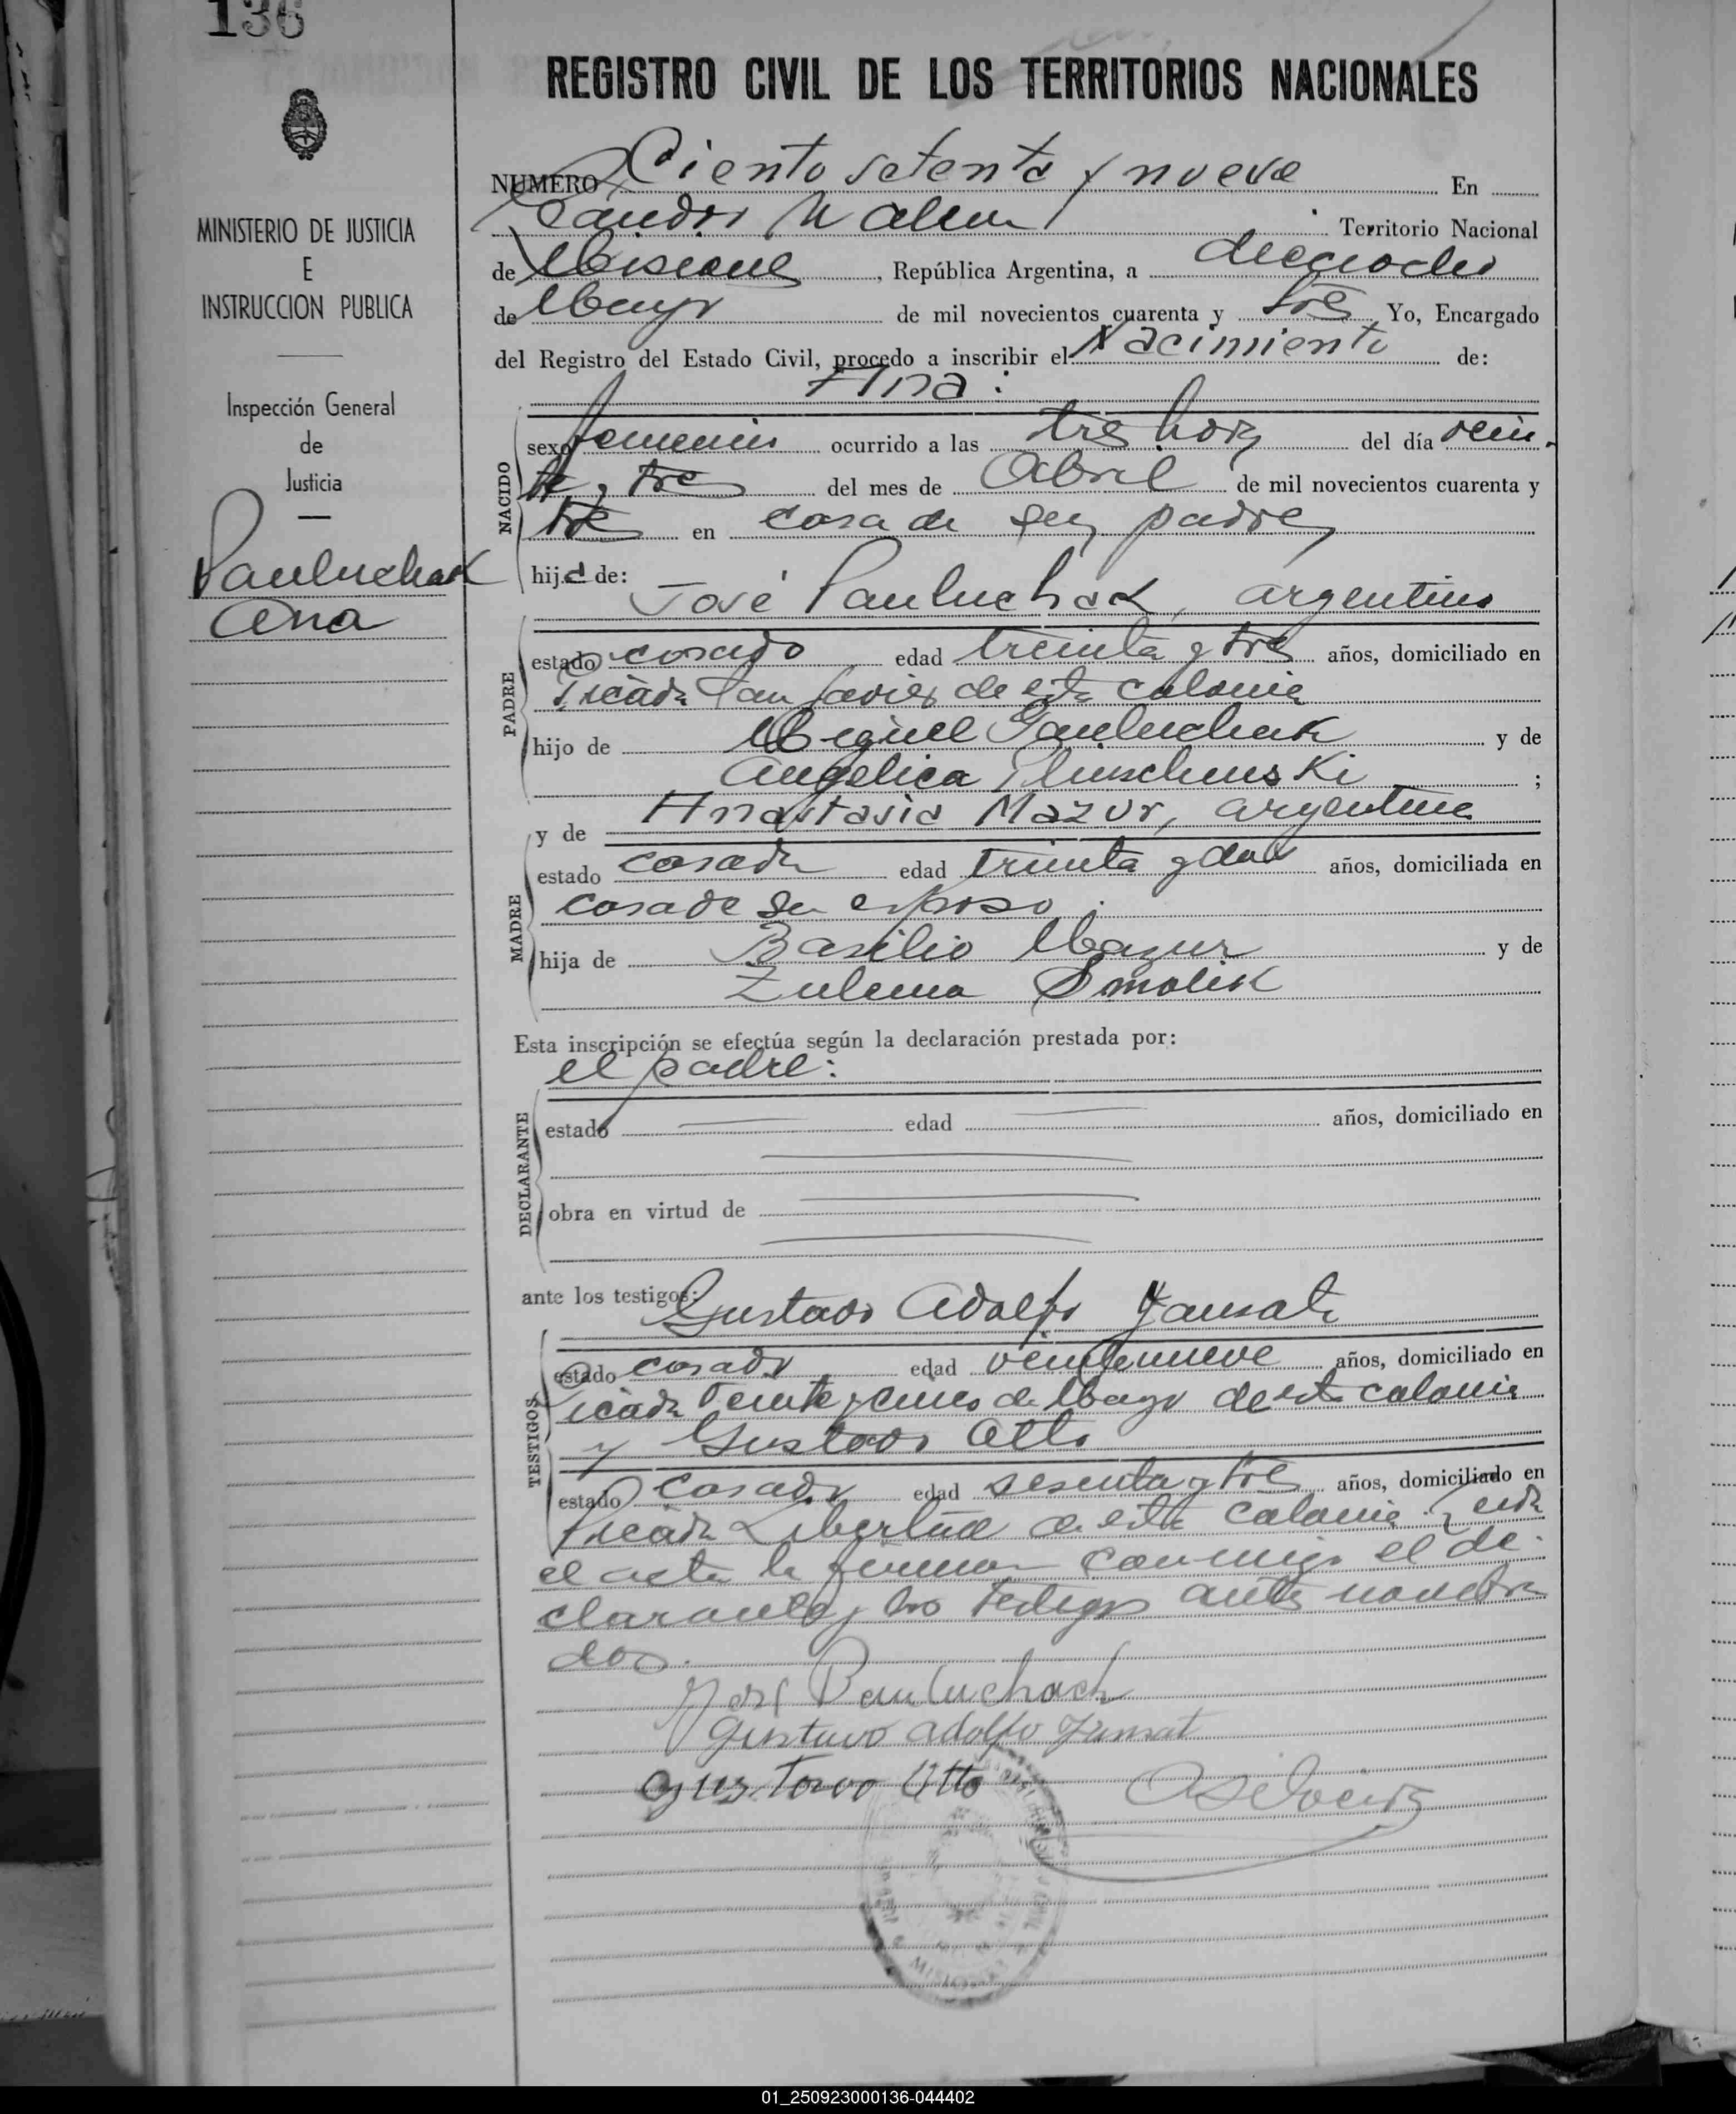 136
REGISTRO CIVIL DE LOS TERRITORIOS NACIONALES
MINISTERIO DE JUSTICIA
E
INSTRUCCION PUBLICA
Inspección General
de
Justicia
Pauluchak
Ana
NUMERO Ciento setenta y nueve En
Leandro N Alem Territorio Nacional
de Misiones, República Argentina, a dieciocho
de Mayo de mil novecientos cuarenta y tres Yo, Encargado
del Registro del Estado Civil, procedo a inscribir el Nacimiento de:
Ana:
NACIDO
sexo femenino ocurrido a las tres horas del día vein-
te y tres del mes de Abril de mil novecientos cuarenta y
tres en casa de sus padres
hija de:
José Pauluchak, argentino
PADRE
estado casado edad treinta y tres años, domiciliado en
Picada San Javier de esta colonia
hijo de Miguel Pauluchak y de
Angelica ;
y de Anastasia Mazur, argentina
MADRE
estado casada edad treinta y dos años, domiciliada en
casa de su esposo.
hija de Basilio Mazur y de
Zulema Smolik
Esta inscripción se efectúa según la declaración prestada por:
el padre:
DECLARANTE
estado edad años, domiciliado en
obra en virtud de
ante los testigos: Gustavo Adolfo
TESTIGOS
estado casado edad veintenueve años, domiciliado en
Picada Veinte y cinco de Mayo de esta colonia
y Gustavo Otto
estado casado edad sesenta y tres años, domiciliado en
Picada Libertad de esta colonia. Leida
el acta la firman conmigo el de-
clarante y los testigos antes nombra
dos.
José Pauluchach
Gustavo Adolfo
Gustavo Otto
01_250923000136-044402